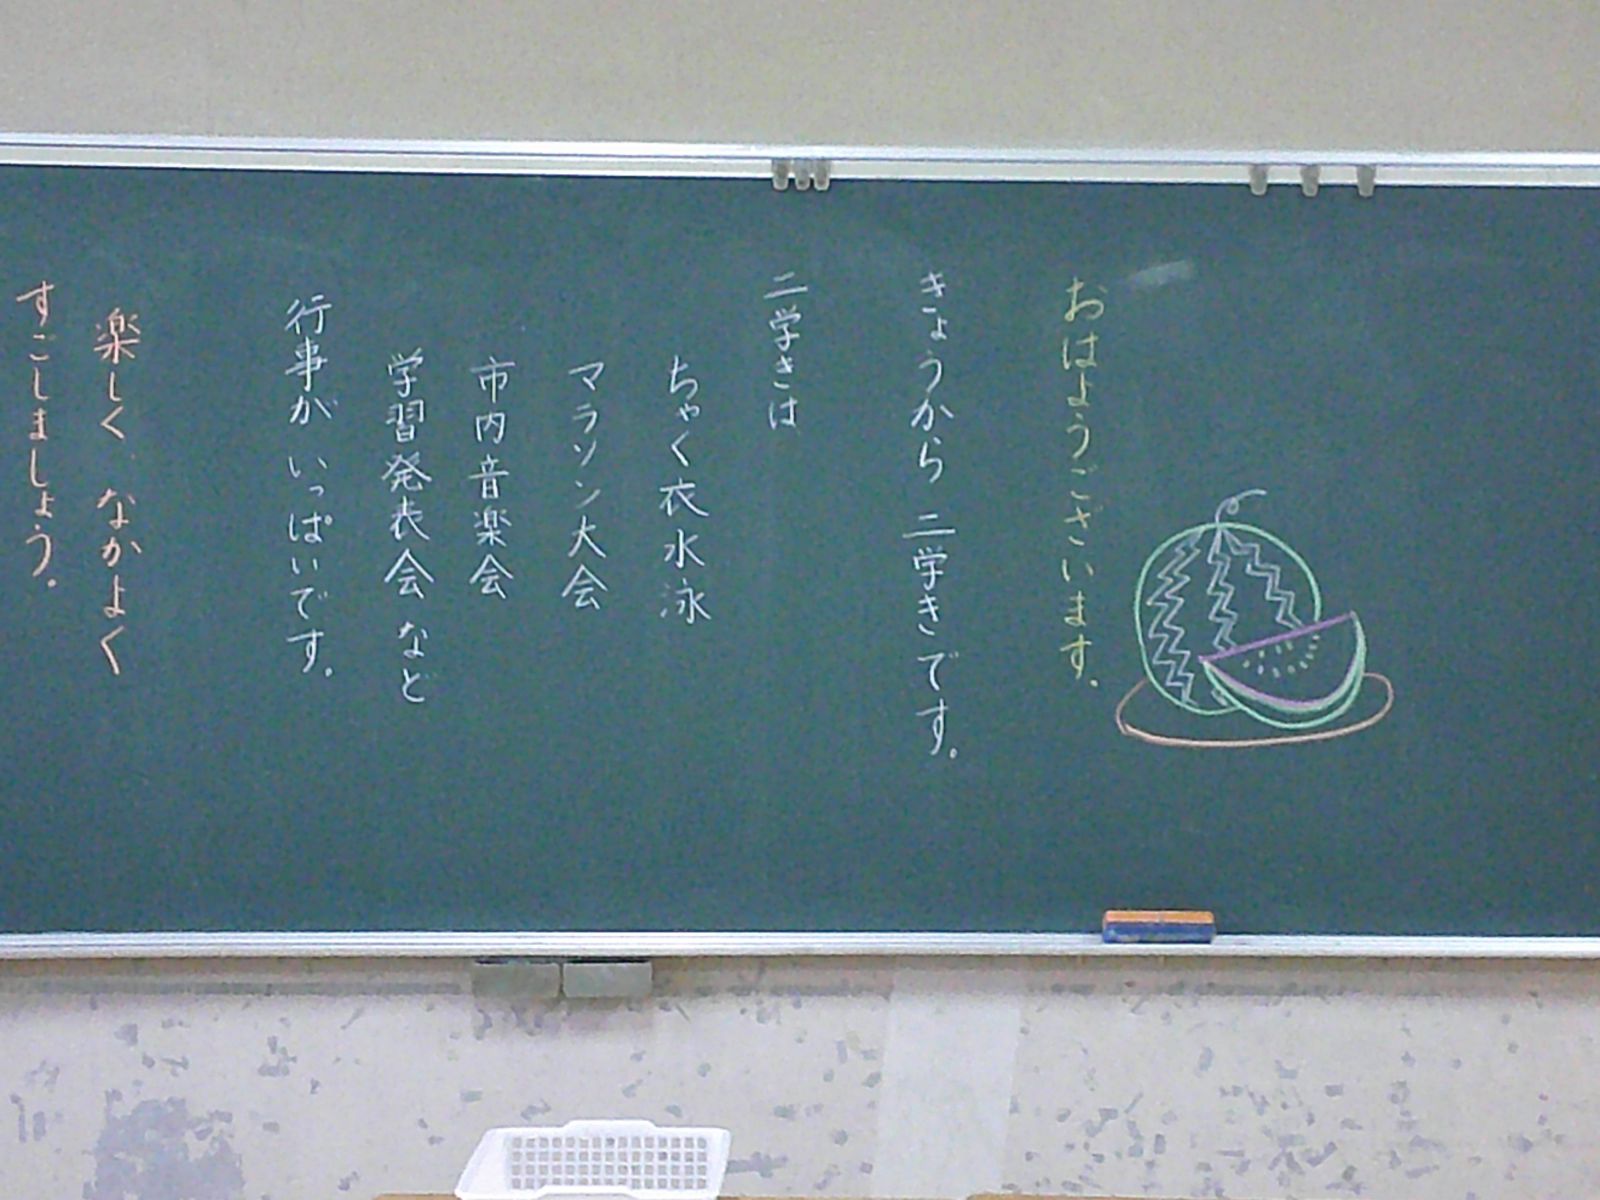 おはようございます。
きょうから 二学きです。
二学きは
ちゃく衣水泳
マラソン大会
市内音楽会
学習発表会 など
行事が いっぱいです。
楽しく なかよく
すごしましょう。